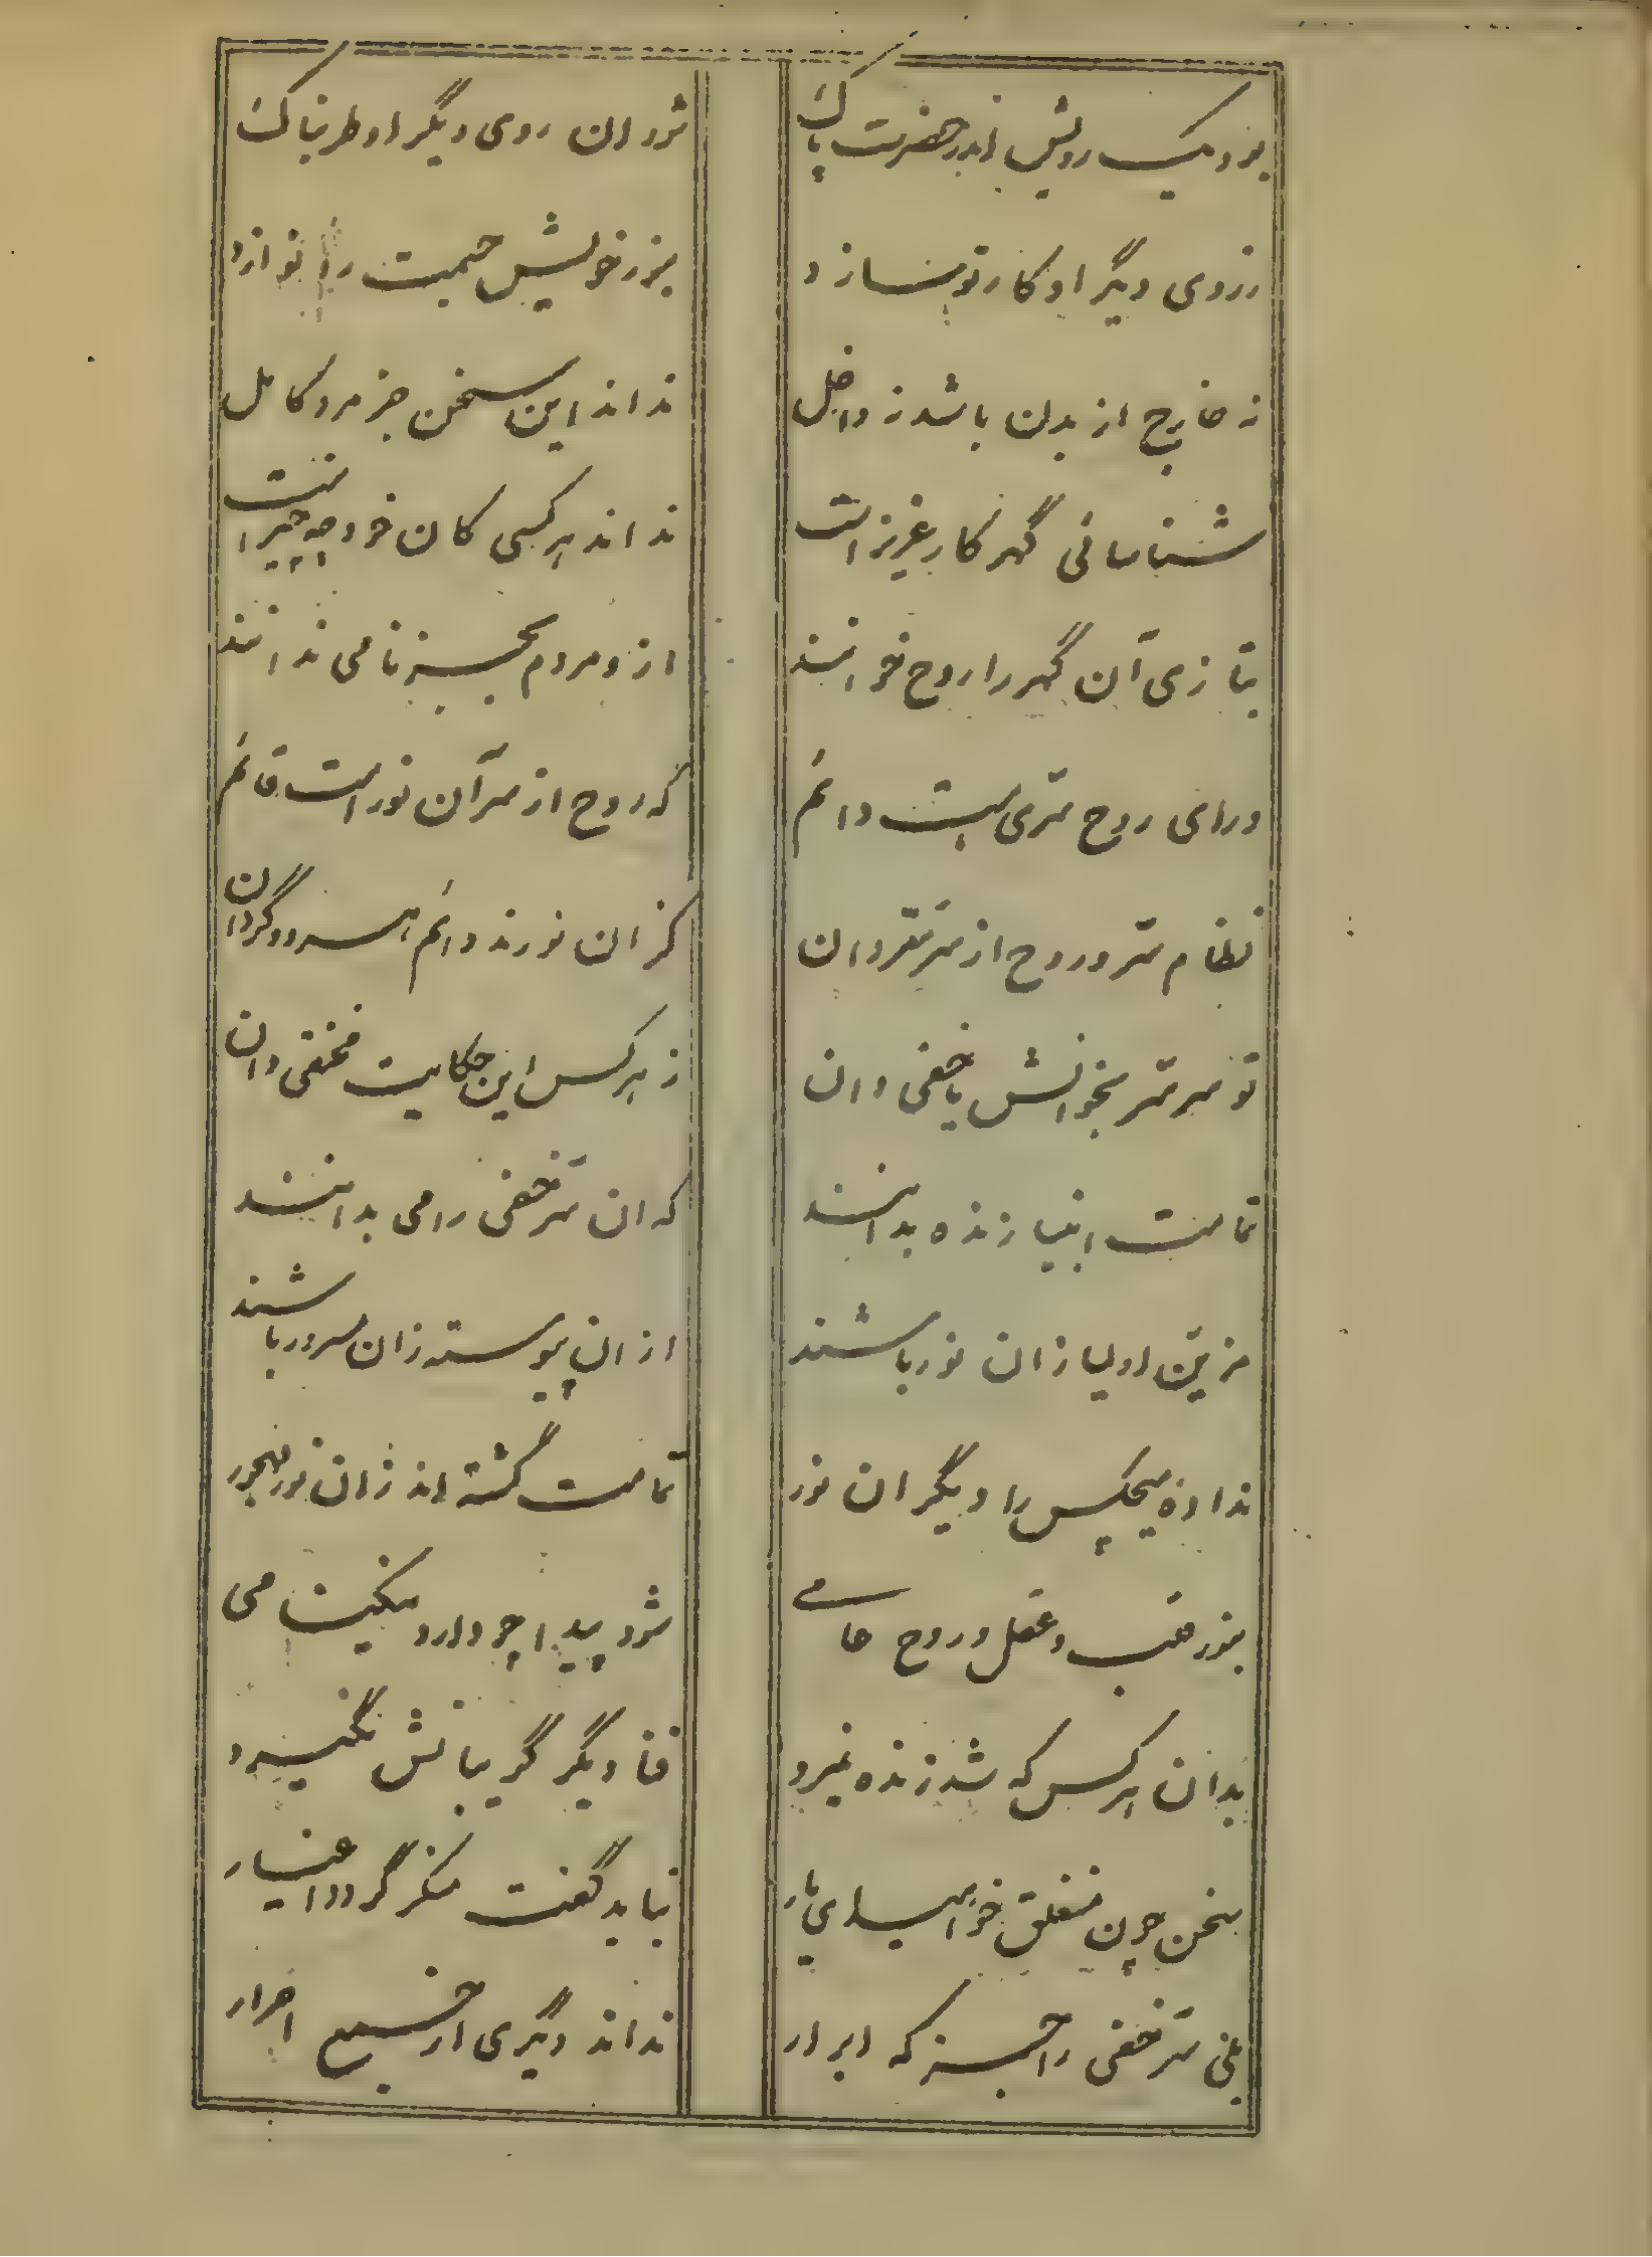 بود یک رویش اندر حضرت پاک
شود ان روی دیگر او طربناک
ز روی دیگر او کار تو سازد
بنور خویش جسمت را نوازد
نه خارج از بدن باشد نه داخل
نداند این سخن جز مرد کامل
شناسائی گهر کار عزیز است
نداند هر کسی کان خود چه چیز است
بتازی آن گهر را روح خوانند
ازو مردم بجز نامی ندانند
ورای روح سری هست دائم
که روح از سر آن نور است قائم
نظام سر و روح از سر سر دان
کز ان نورند دائم هر دو گردان
تو سر سر بخوانش یا خفی دان
ز هر کس این حکایت مختفی دان
تمامت انبیا زنده بدانند
که ان سر خفی را می بدانند
مزین اولیا زان نور باشند
از ان پیوسته زان مسرور باشند
نداده هیچکس را دیگر ان نور
تمامت گشته اند زان نور مهجور
بنور قلب و عقل و روح
شود پیدا چو دارد می
بدان هر کس که شد زنده نمیرد
فنا دیگر گریبانش نگیرد
سخن چون مغلق خواهد شد ای یار
نباید گفت منکر گردد اغیار
بلی سر خفی را جز که ابرار
نداند دیگری از جمیع احرار